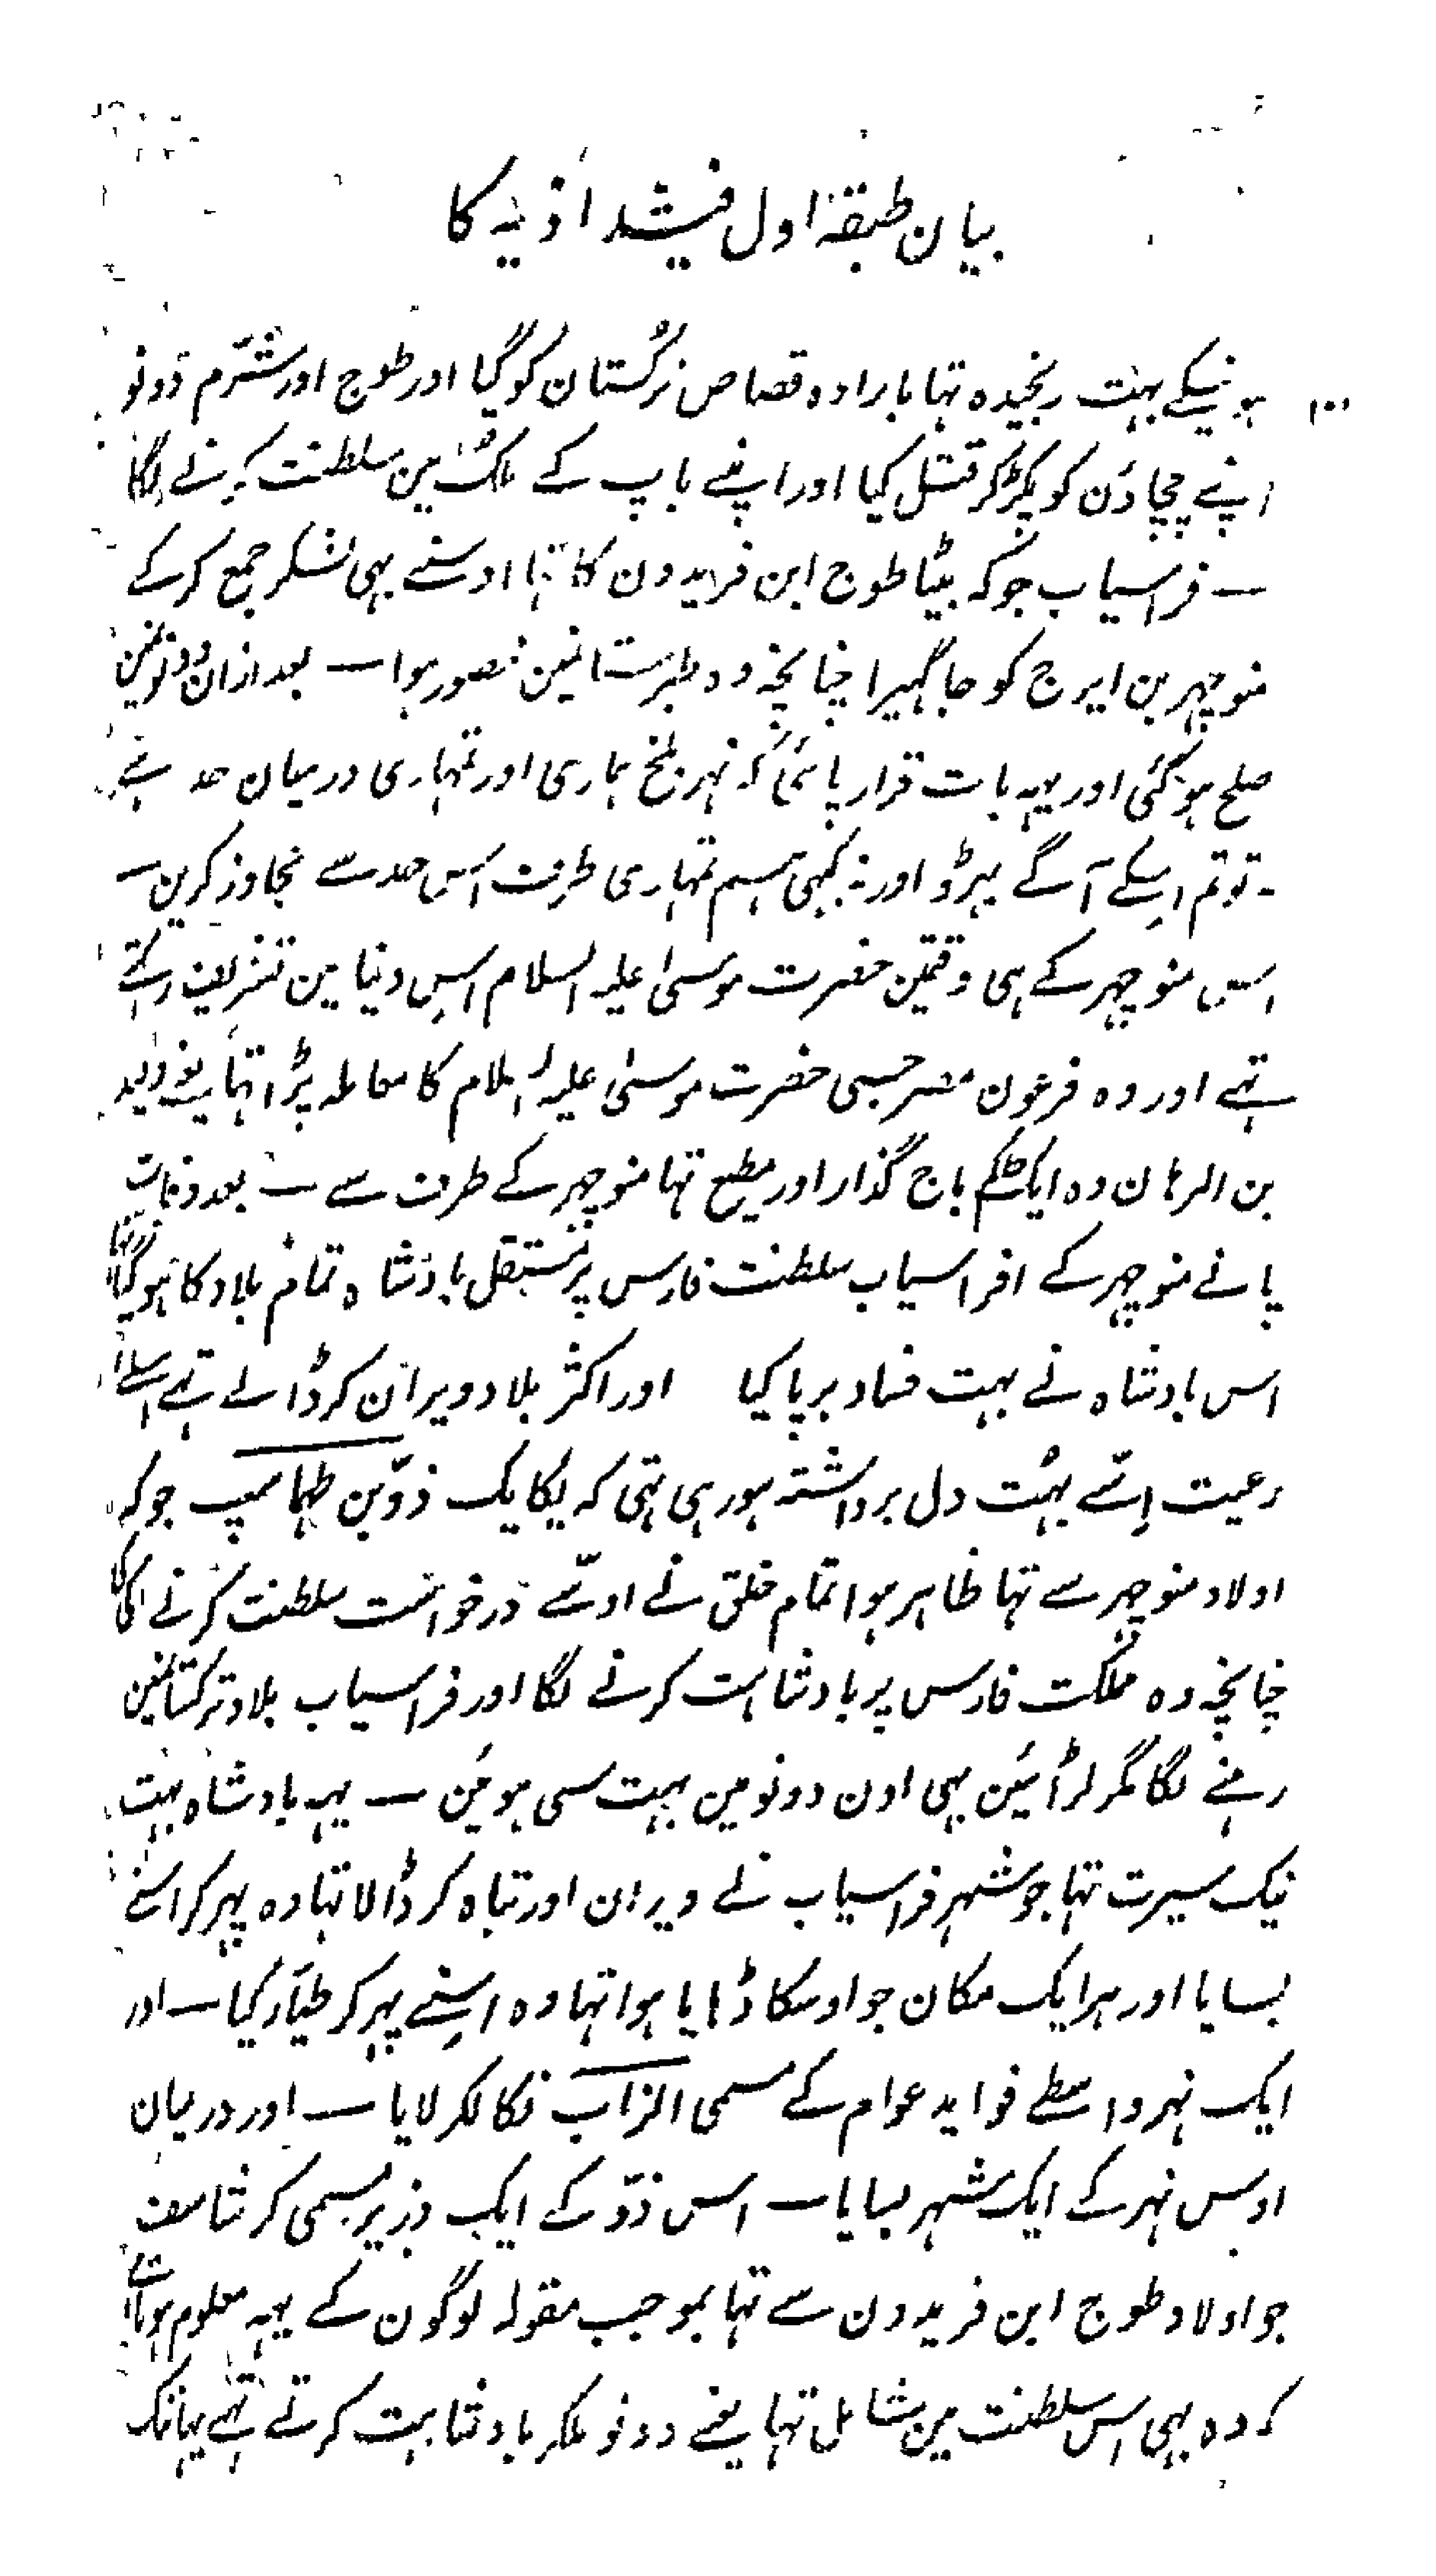 بیان طبقۂ اول فیشدادیہ کا
ہونیکے بہت رنجیدہ تہا بارادہ قصاص ترکستان کو گیا اور طوج اور شرم دونو
اپنے چچاؤن کو پکڑکر قتل کیا اور اپنے باپ کے ملک مین سلطنت کرنے لگا
۔ فراسیاب جو کہ بیٹا طوج ابن فریدون کا تہا اوسنے بہی لشکر جمع کرکے
منوچہر بن ایرج کو جا گہیرا چنانچہ وہ طبرستانمین محصور ہوا ۔ بعد ازان دونومین
صلح ہوگئی اور یہہ بات قرار پائی کہ نہر بلخ ہماری اور تمہاری درمیان حد ہے
۔ تو تم اسکے آگے بہڑو اور نہ کبہی ہم تمہاری طرف اس حد سے تجاوز کرین ۔
اس منوچہر کے ہی وقتمین حضرت موسیٰ علیہ السلام اس دنیا مین تشریف رکہتے
تہے اور وہ فرعون مصر جسسی حضرت موسیٰ علیہ السلام کا معاملہ پڑا تہا یعنے ولید
بن الریان وہ ایک حاکم باج گذار اور مطیع تہا منوچہر کے طرف سے ۔ بعد وفات
پانے منوچہر کے افراسیاب سلطنت فارس پر مستقل بادشاہ تمام بلاد کا ہوگیا
اس بادشاہ نے بہت فساد برپا کیا اور اکثر بلاد ویران کر ڈالے تہے اسلئے
رعیت اسّے بہت دل برداشتہ ہورہی تہی کہ یکایک ذوّبن طہماسپ جو کہ
اولاد منوچہر سے تہا ظاہر ہوا تمام خلق نے اوسّے درخواست سلطنت کرنے کا کا
چنانچہ وہ مملکت فارس پر بادشاہت کرنے لگا اور فراسیاب بلاد ترکستانمین
رہنے لگا مگر لڑائین بہی اون دونو مین بہت سی ہوئین ۔ یہہ بادشاہ بہت
نیک سیرت تہا جو شہر فراسیاب نے ویران اور تباہ کر ڈالا تہا وہ پہر کر اسنے
بسایا اور ہر ایک مکان جو اوسکا ڈہایا ہوا تہا وہ اسنے پہر کر طیّار کیا ۔ اور
ایک نہر واسطے فواید عوام کے مسمی الزاب نکالکر لایا ۔ اور درمیان
اوس نہر کے ایک شہر بسایا ۔ اس ذوّ کے ایک وزیر مسمی کرشاسف
جو اولاد طوج ابن فریدون سے تہا بموجب مقولہ لوگون کے یہہ معلوم ہوتا ہے
کہ وہ بہی اس سلطنت مین شامل تہا یعنے دونو ملکر بادشاہت کرتے تہے یہانتک